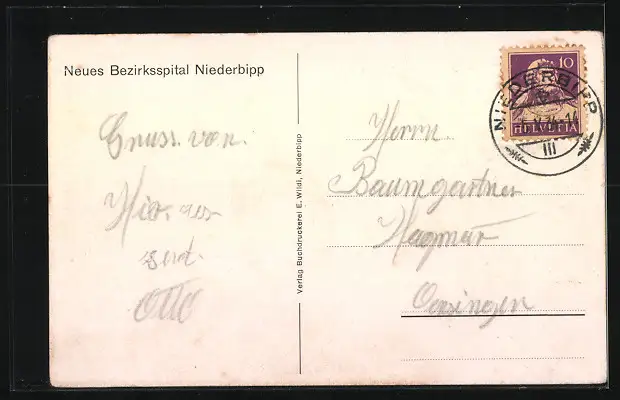 Neues Bezirksspital Niederbipp
Gruss von
Otto
Verlag Buchdruckerei E. Wildi, Niederbipp
10
HELVETIA
NIEDERBIPP
III
Herrn
Baumgartner
Wagner
Oensingen